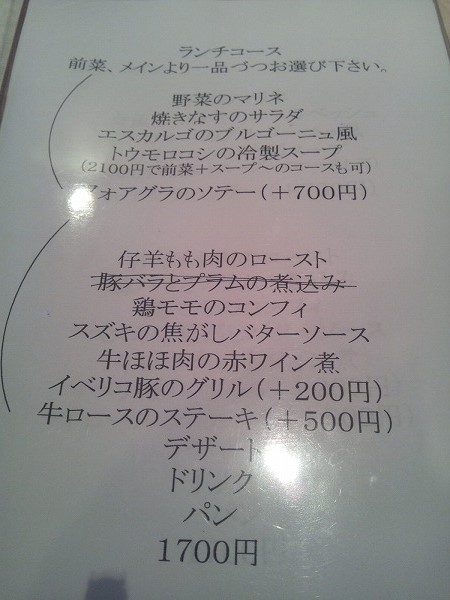 ランチコース
前菜、メインより一品づつお選び下さい。
野菜のマリネ
焼きなすのサラダ
エスカルゴのブルゴーニュ風
トウモロコシの冷製スープ
(2100円で前菜+スープ～のコースも可)
フォアグラのソテー(+700円)
仔羊もも肉のロースト
豚バラとプラムの煮込み
鶏モモのコンフィ
スズキの焦がしバターソース
牛ほほ肉の赤ワイン煮
イベリコ豚のグリル(+200円)
牛ロースのステーキ(+500円)
デザート
ドリンク
パン
1700円